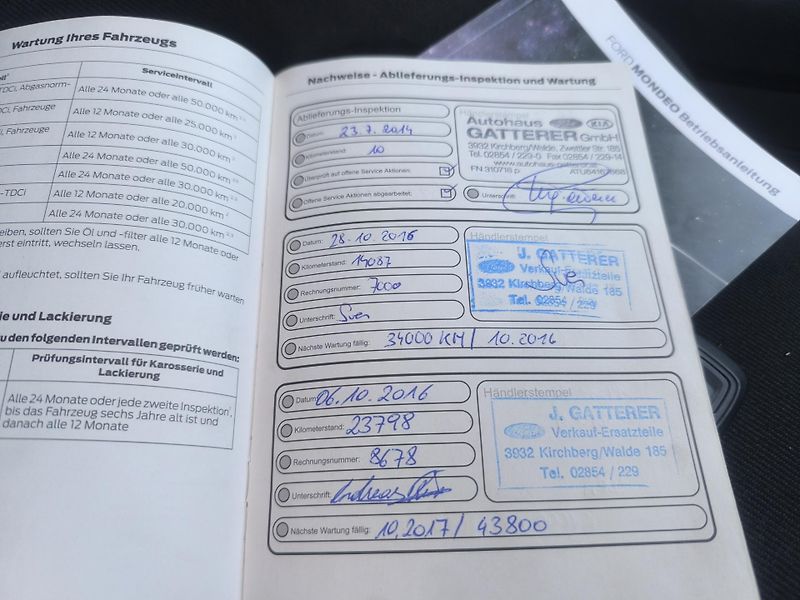 Wartung Ihres Fahrzeugs
Serviceintervall
TDCi, Abgasnorm-
Alle 24 Monate oder alle 50.000 km
DCi, Fahrzeuge
Alle 12 Monate oder alle 25.000 km
Fahrzeuge
Alle 12 Monate oder alle 30.000 km
Alle 24 Monate oder alle 50.000 km
Alle 24 Monate oder alle 30.000 km
-TDCi
Alle 12 Monate oder alle 20.000 km
Alle 24 Monate oder alle 30.000 km
eiben, sollten Sie Öl und -filter alle 12 Monate oder
erst eintritt, wechseln lassen.
aufleuchtet, sollten Sie Ihr Fahrzeug früher warten
ie und Lackierung
u den folgenden Intervallen geprüft werden:
Prüfungsintervall für Karosserie und
Lackierung
Alle 24 Monate oder jede zweite Inspektion,
bis das Fahrzeug sechs Jahre alt ist und
danach alle 12 Monate
Nachweise - Ablieferungs-Inspektion und Wartung
Ablieferungs-Inspektion
Datum: 23.7.2014
Kilometerstand: 10
Überprüft auf offene Service Aktionen:
Offene Service Aktionen abgearbeitet:
Autohaus Ford KIA
GATTERER GmbH
3932 Kirchberg/Walde, Zwettler Str. 185
Tel. 02854 / 229-0 Fax 02854 / 229-14
www.autohaus-gatterer.at
FN 310716 p
Unterschrift:
Datum: 28.10.2016
Kilometerstand: 14087
Rechnungsnummer: 7000
Unterschrift: Sven
Nächste Wartung fällig: 34000 KM / 10.2016
Händlerstempel
J. GATTERER
Ford Verkauf-Ersatzteile
3932 Kirchberg/Walde 185
Tel. 02854 / 229
Datum: 06.10.2016
Kilometerstand: 23798
Rechnungsnummer: 8678
Unterschrift: Andreas
Nächste Wartung fällig: 10.2017 / 43800
Händlerstempel
J. GATTERER
Ford Verkauf-Ersatzteile
3932 Kirchberg/Walde 185
Tel. 02854 / 229
FORD MONDEO Betriebsanleitung